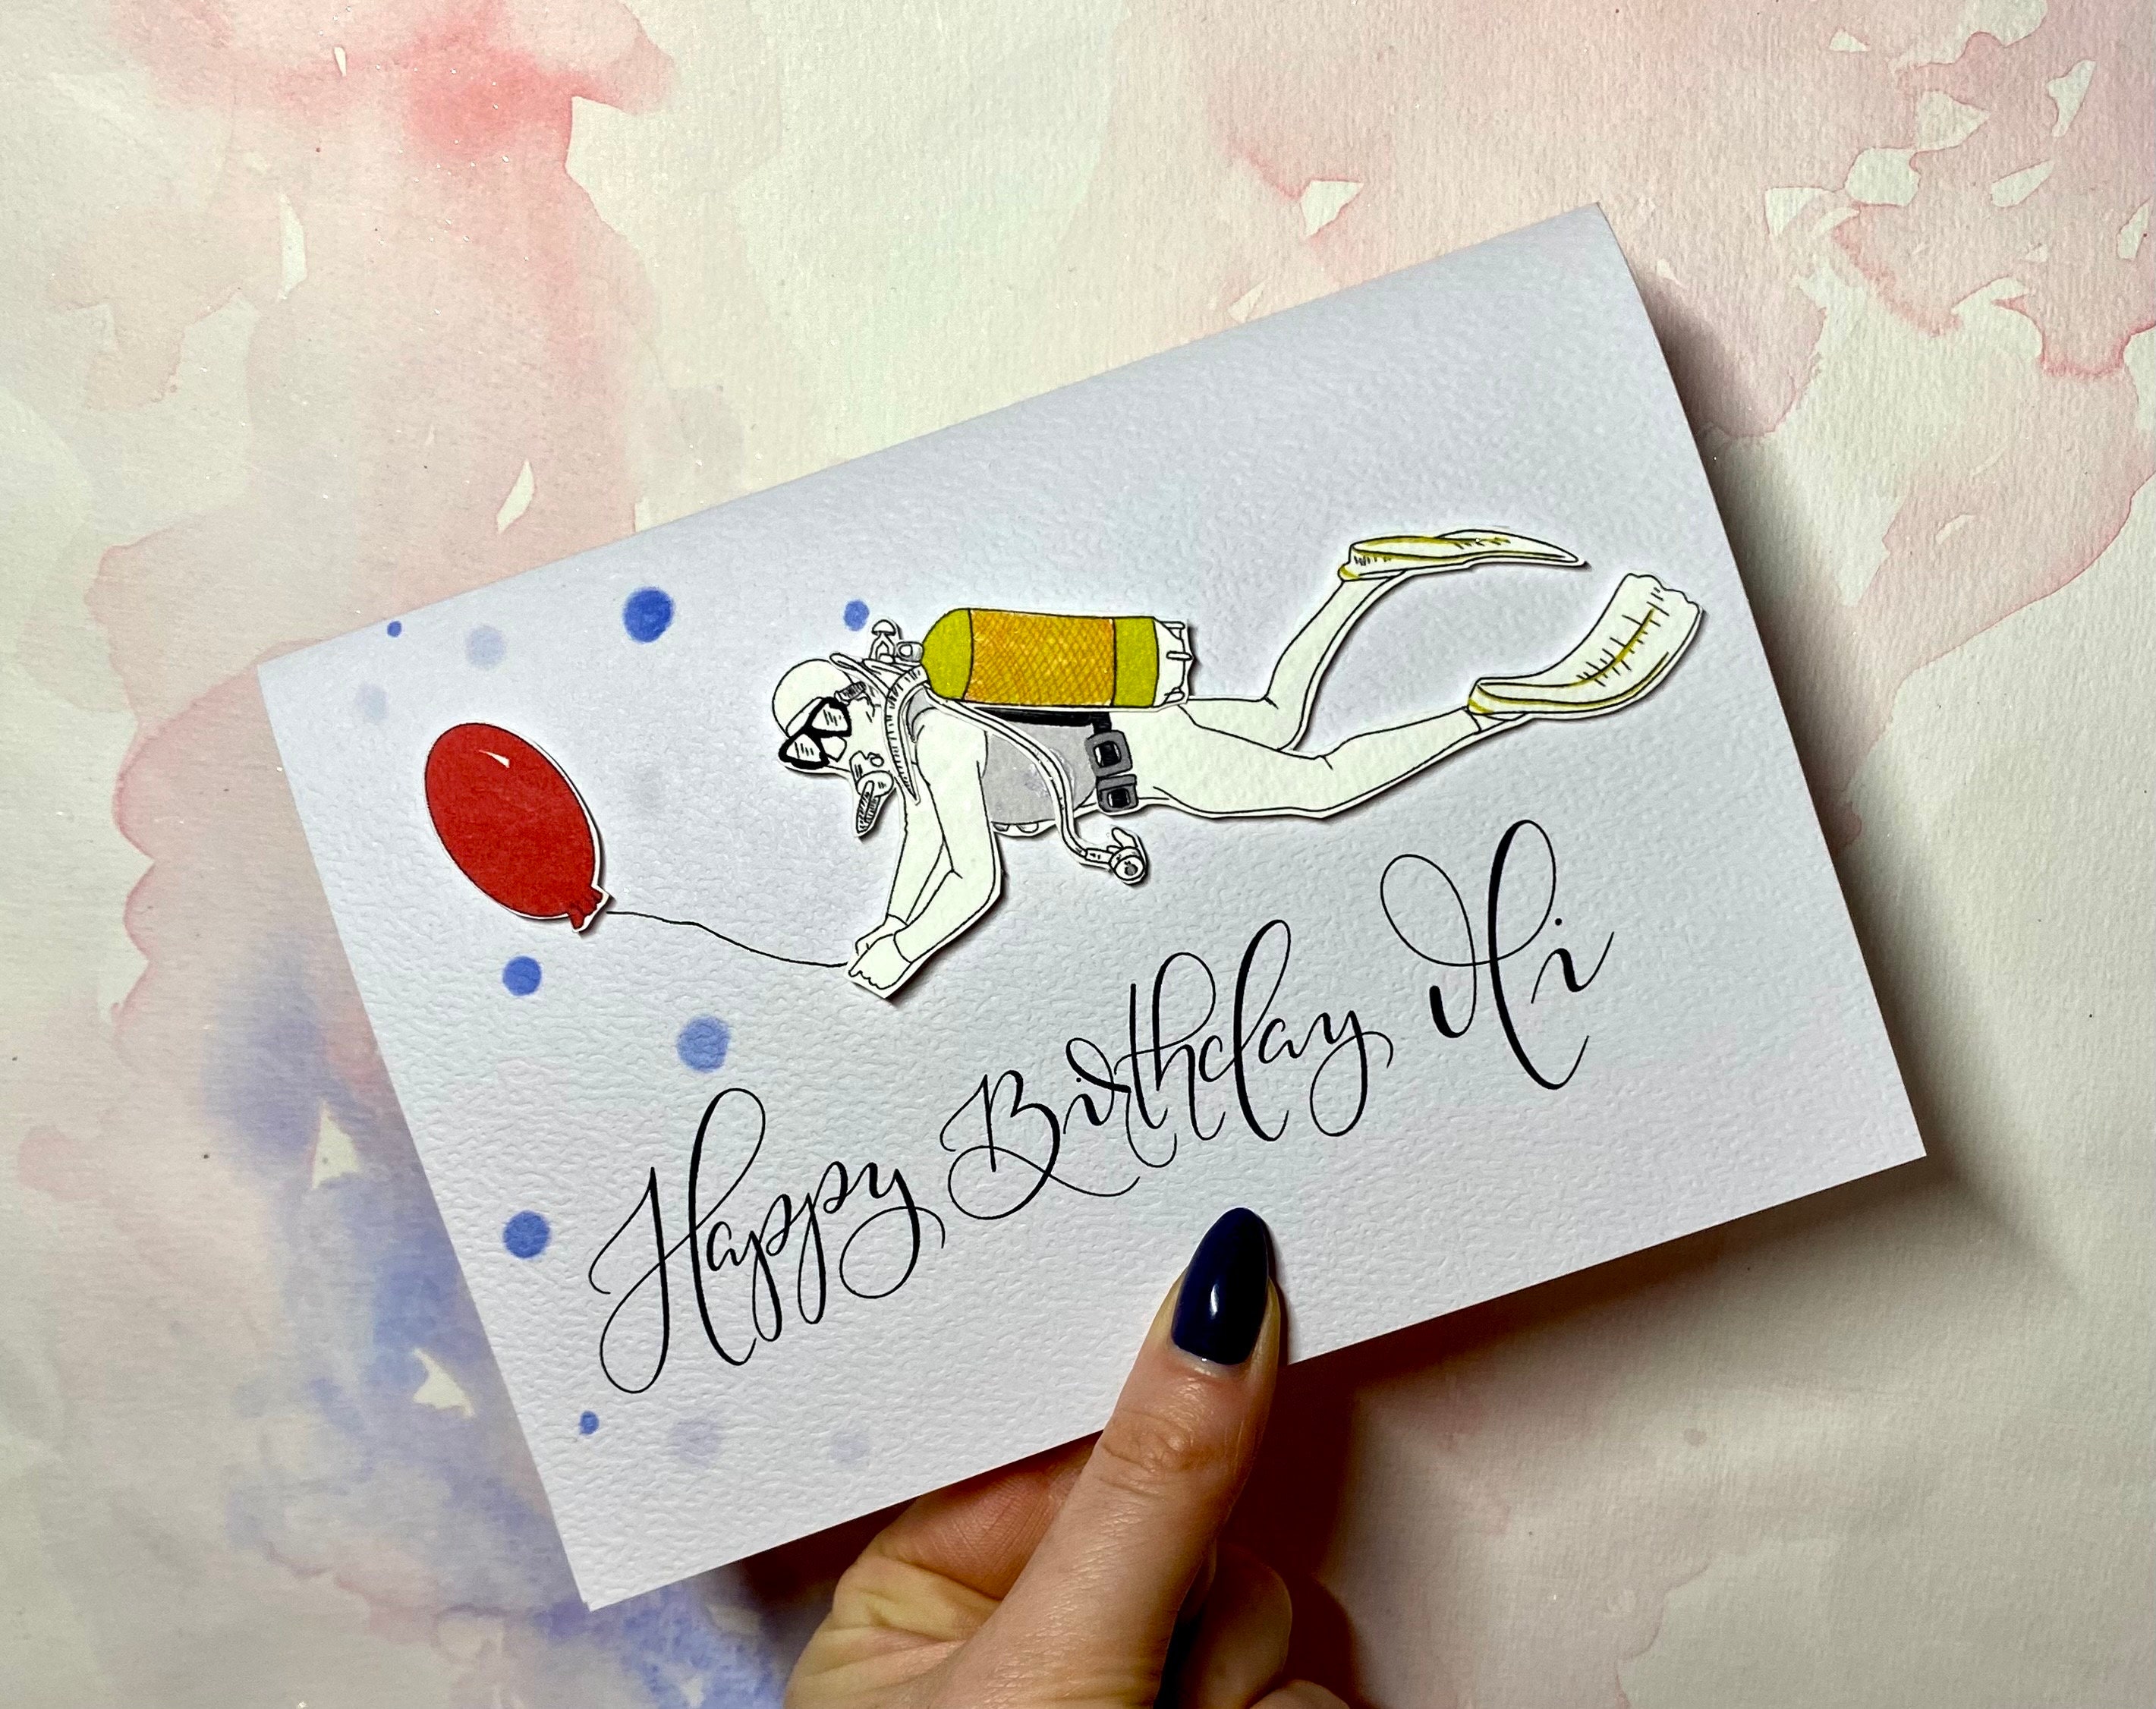 Happy Birthday Mi